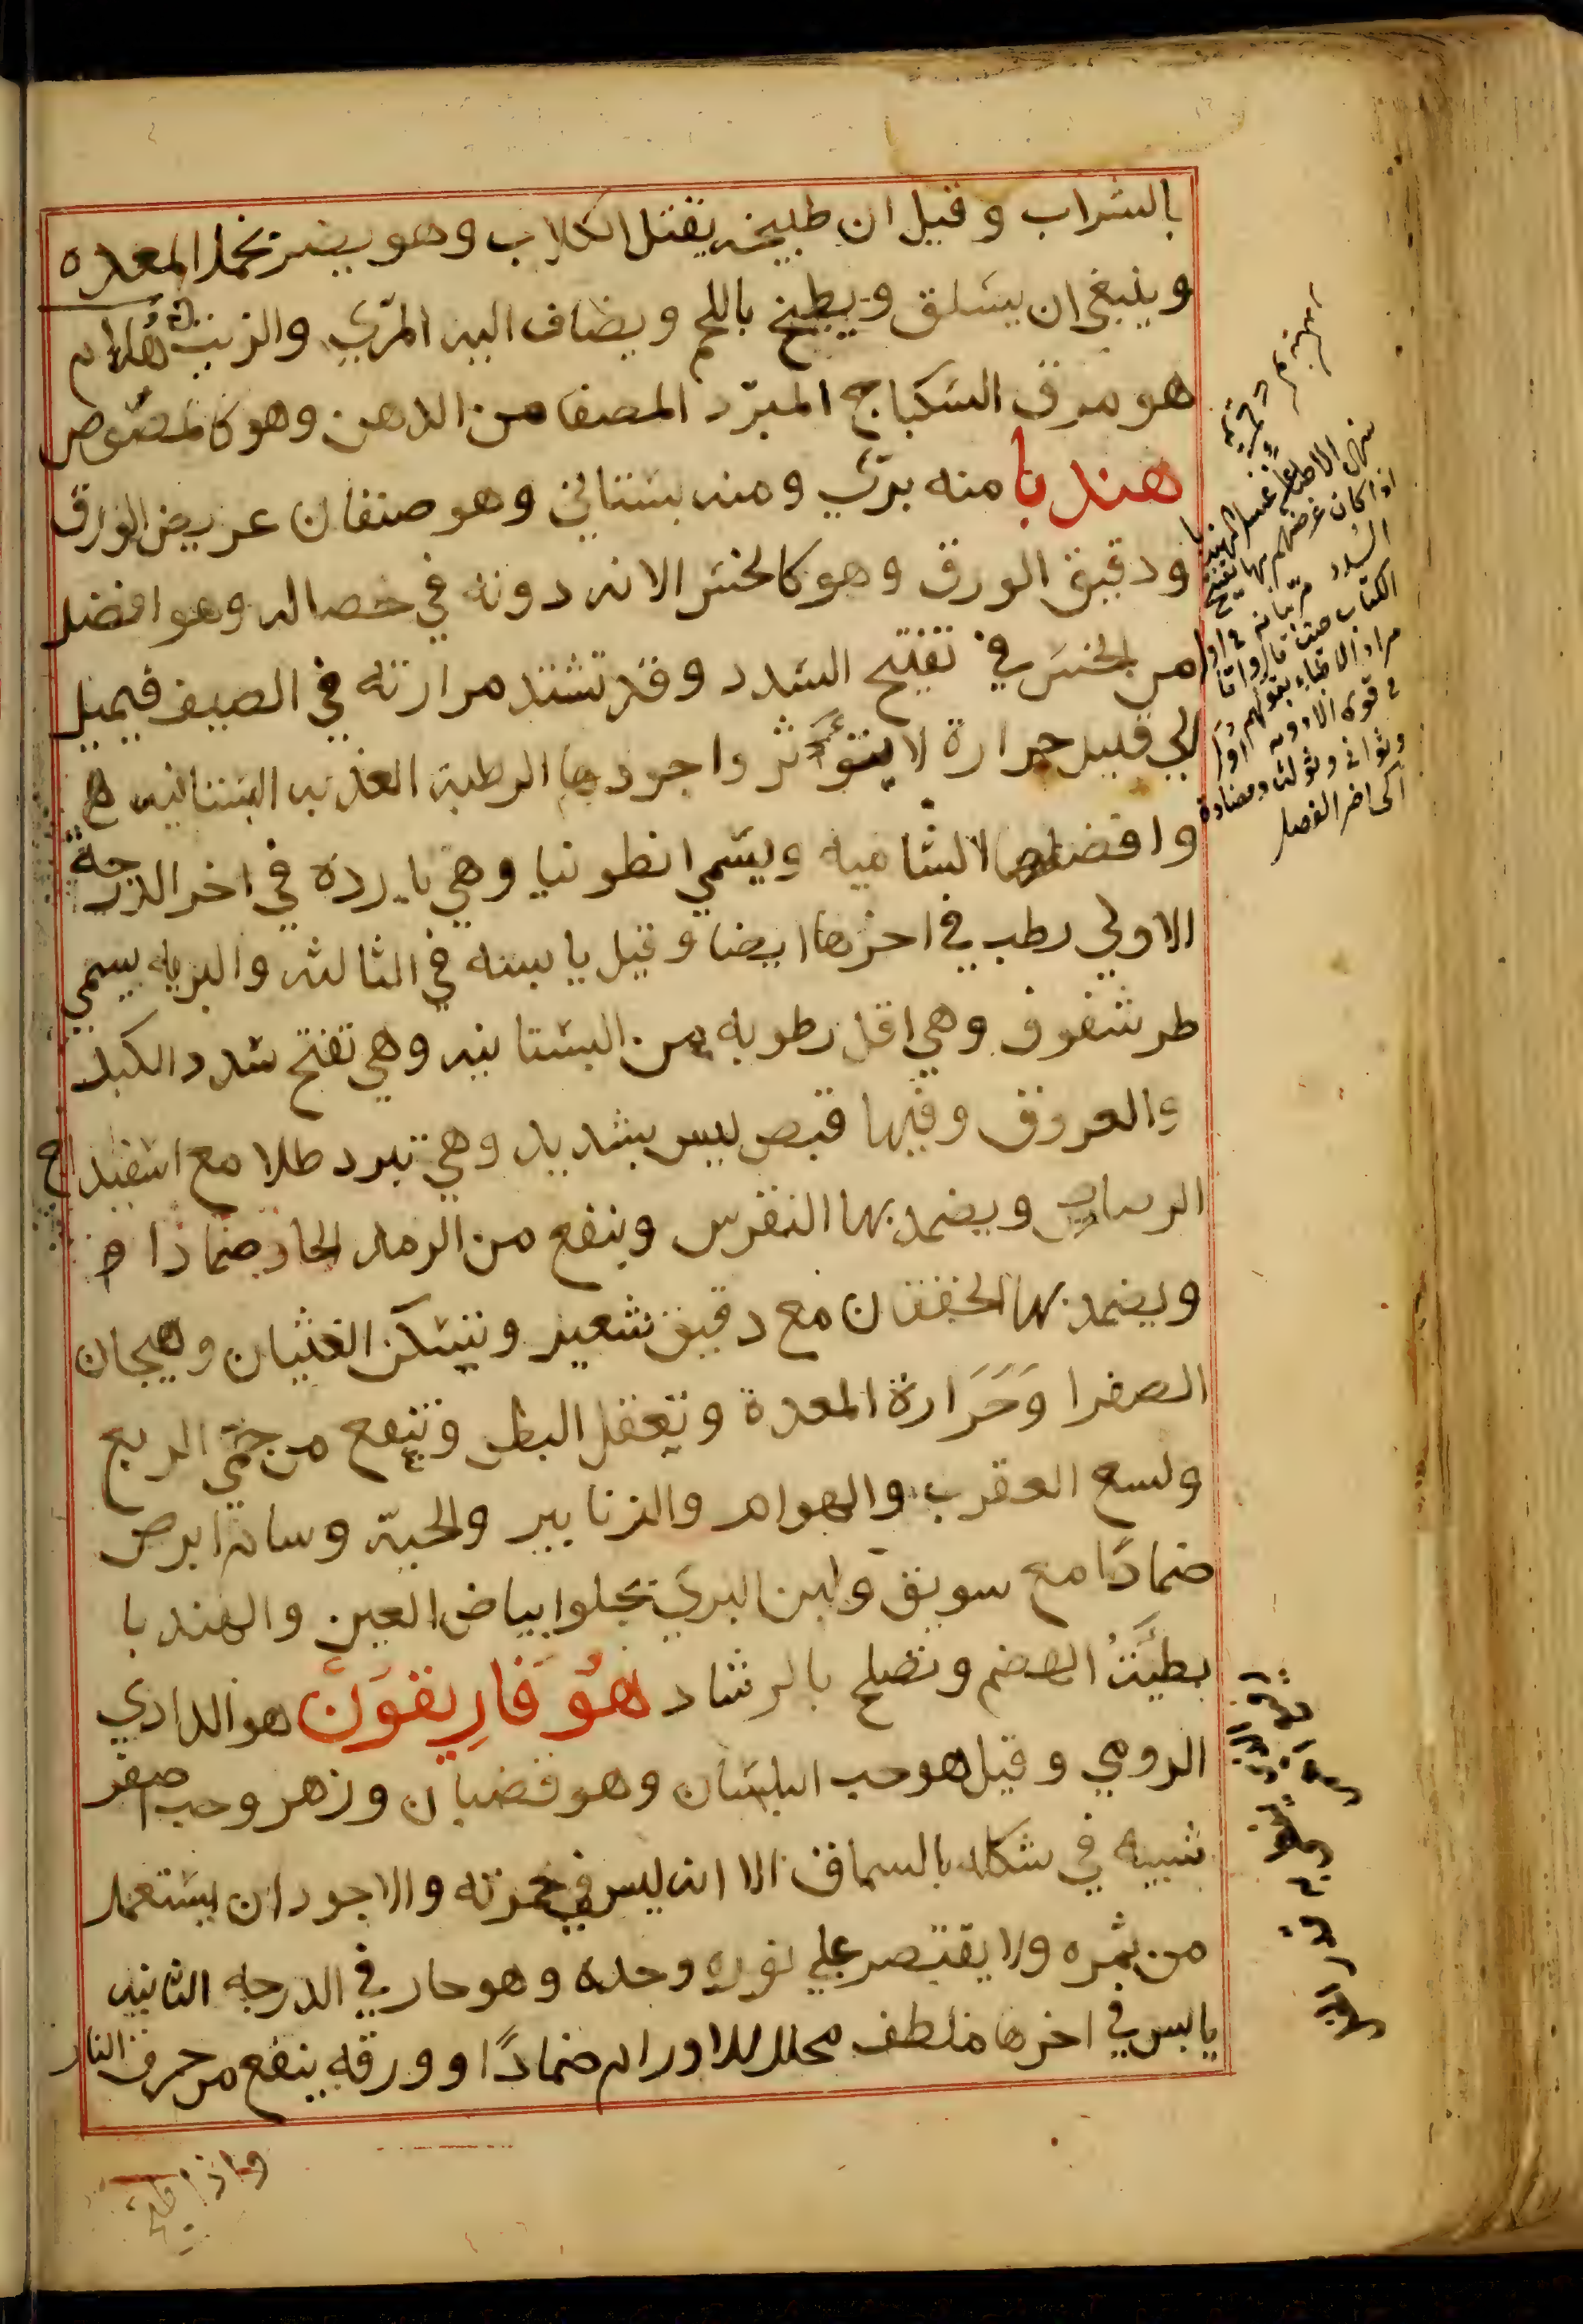 بالشراب وقيل ان طبيخه يقتل الكلاب وهو يضر بخمل المعده
وينبغي ان يسلق ويطبخ باللحم ويضاف اليه المري والزيت هُلام
هو مرق السكباج المبرّد المصفا من الدهن وهو كالمصُوص
هندبا منه برّي ومنه بستاني وهو صنفان عريض الورق
ودقيق الورق وهو كالخس الا انه دونه في خصاله وهو افضل
من الخس في تفتيح السدد وقد تشتد مرارته في الصيف فيميل
الي قليل حرارة لا يؤثر واجودها الرطبه العذبه البستانيه
وافضلها الشاميه ويسمي انطونيا وهي بارده في اخر الدرجة
الاولي رطب في اخرها ايضا وقيل يابسه في الثالثه والبريه يسمي
طرشقوق وهي اقل رطوبه من البستانيه وهي تفتح سدد الكبد
والعروق وفيها قبض ليس بشديد وهي تبرد طلا مع اسفيداج
الرصاص ويضمد بها النقرس وينفع من الرمد الحار ضمادا
ويضمد بها الخفقان مع دقيق شعير وتسكن الغثيان وهيجان
الصفرا وَحَرَارة المعدة وتعقل البطن وتنفع من حمّي الربع
ولسع العقرب والهوام والزنابير والحية وسام ابرص
ضمادًا مع سويق ولبن البري يجلوا بياض العين والهندبا
بطيّئة الهضم وتصلح بالرشاد هُوفَارِيقوَن هو الدادي
الرومي وقيل هو حب البلسان وهو قضبان وزهر وحب اصفر
شبيه في شكله بالسماق الا انه ليس في حمرته والاجود ان يستعمل
من ثمره ولا يقتصر علي نوره وحده وهو حار في الدرجه الثانيه
يابس في اخرها ملطف محلل للاورام ضمادًا وورقه ينفع من حرق النار
الاطباء غسل الهندبا
اذا كان غرضهم بها تفتيح
السدد
الكتاب حيث قالوا
مراد الاطباء بقولهم
في قوه الادويه
وثواني وثوالث ومضادة
الى اخر الفصل
واذا